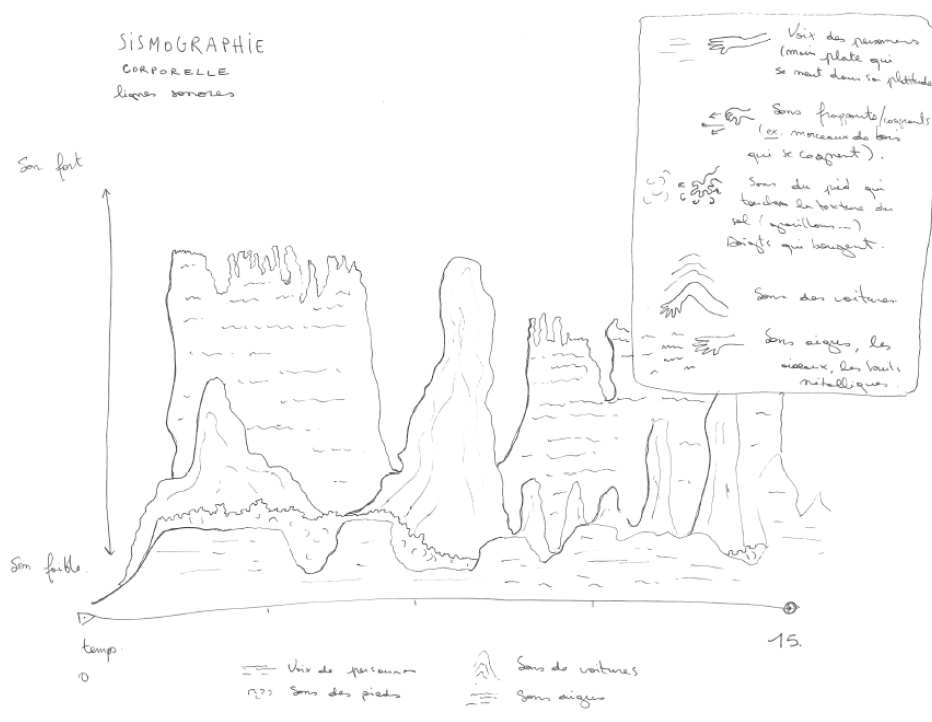 SISMOGRAPHIE
CORPORELLE
lignes sonores
Voix des personnes
(main plate qui
se meut dans sa platitude
Sons frappants/cognants
(ex. morceaux de bois
qui se cognent).
Sons du pied qui
touchent la texture du
sol (gravillons...)
Doigts qui bougent.
Sons des voitures
Sons aigus, les
oiseaux, les bruits
métalliques.
Son fort
Son faible
temps.
0
15.
Voix de personnes
Sons des pieds
Sons de voitures
Sons aigus